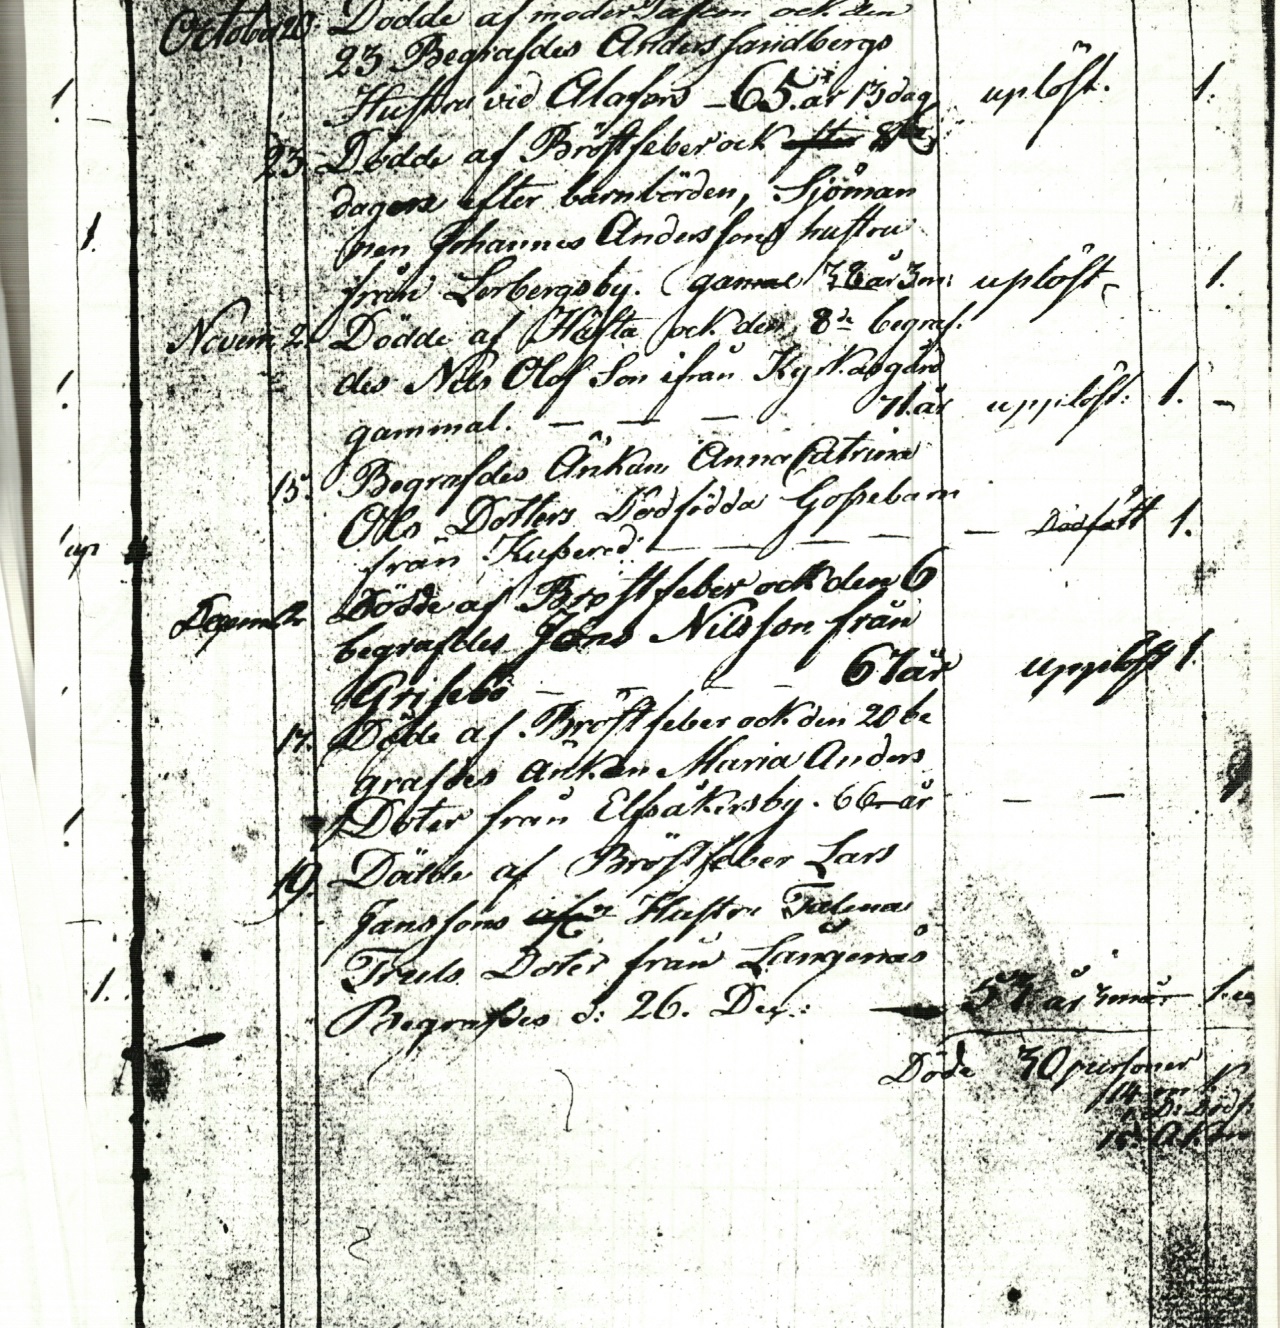 October 20. Dödde af moder Passion ock den
23 Begrafdes Anders Sandbergs
1. Hustru vid Alafors – 65 år 13 dag uplöst. 1.
23 Dödde af Bröstfeber ock
dagen efter barnbörden, Sjöman
1. nen Johannes Anderssons hustru
från Lerbergsby. gamal 38 år 3 m: uplöst 1.
Novem 2. Dödde af Håsta ock den 8de begraf.
1. des Nils Olof Son ifrån Kyrkasgård
gammal. — — — 71 år upplöst: 1. –
15. Begrafdes Änkan Anna Catrina
Ols Dotters Dödfödda Gossebarn
från Kusered — — — — — Dödfött 1.
December Dödde af Bröstfeber ock den 6
begrafdes Jöns Nilsson från
Grisebo — — — 67 år upplöst 1.
17. Dödde af Bröstfeber ock den 20 be
grafdes Änkan Maria Anders
1. Doter från Elfsåkersby. 66 år — —
19. Dödde af Bröstfeber Lars
Janssons Hustru
Truls Doter från Långenäs
1. Begrafdes d: 26. Dec: — 53 år 3 mår 1.
Döde 30 personer